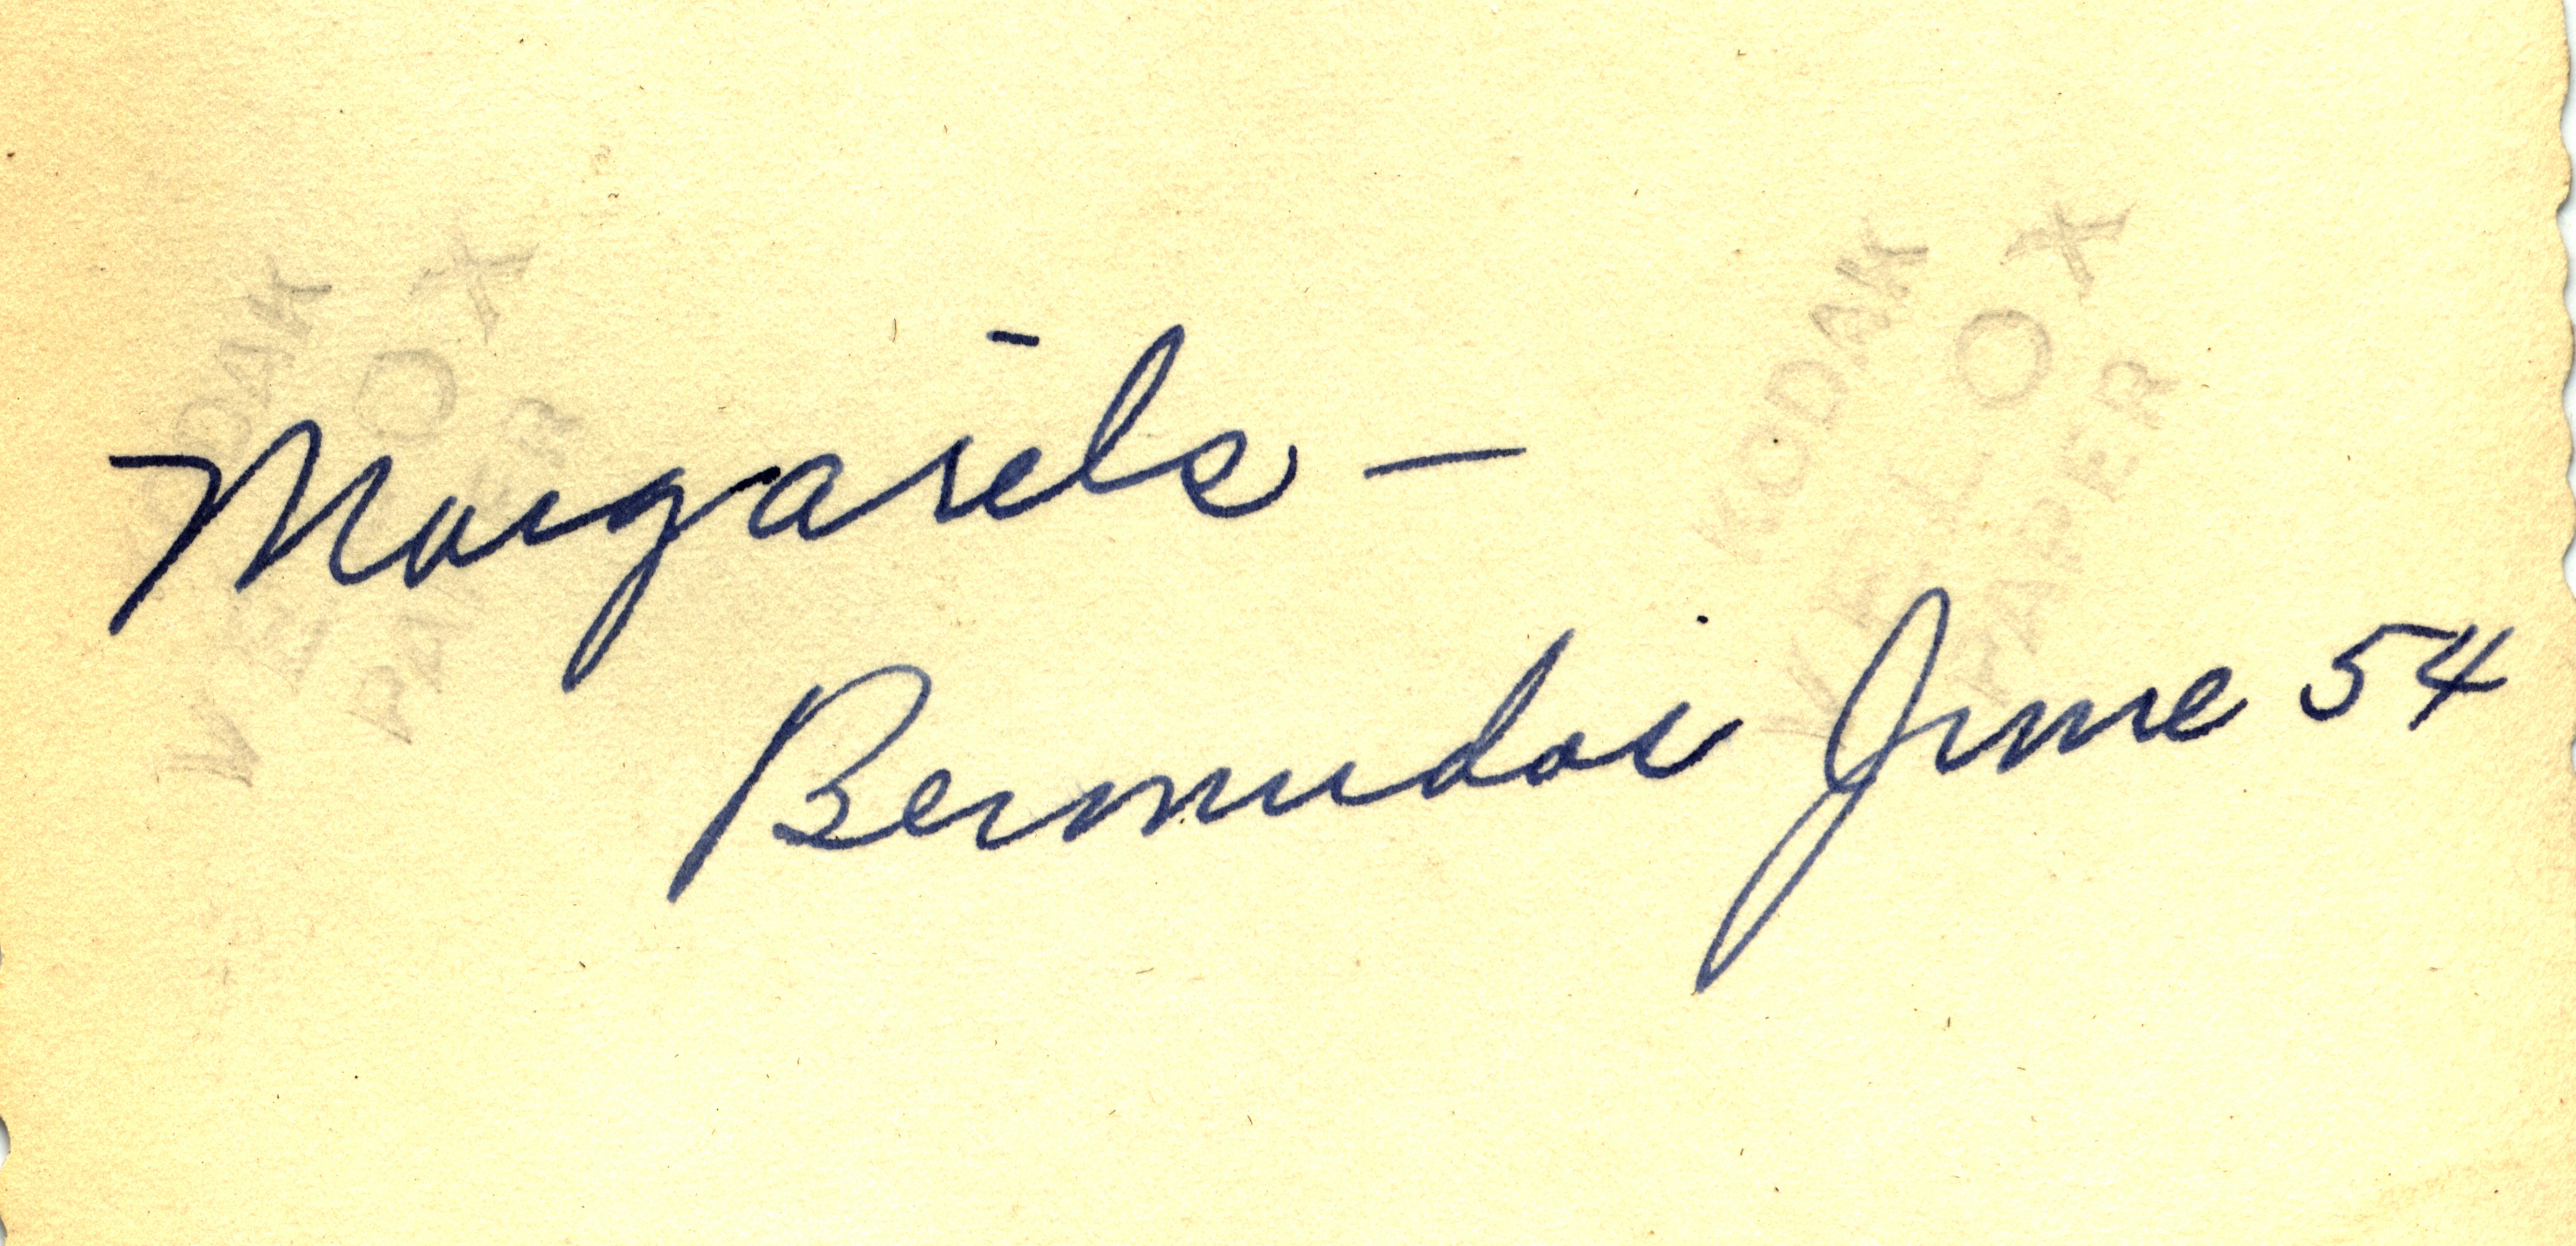 Margarets —
Bermuda June 54
KODAK
VELOX
PAPER
KODAK
VELOX
PAPER